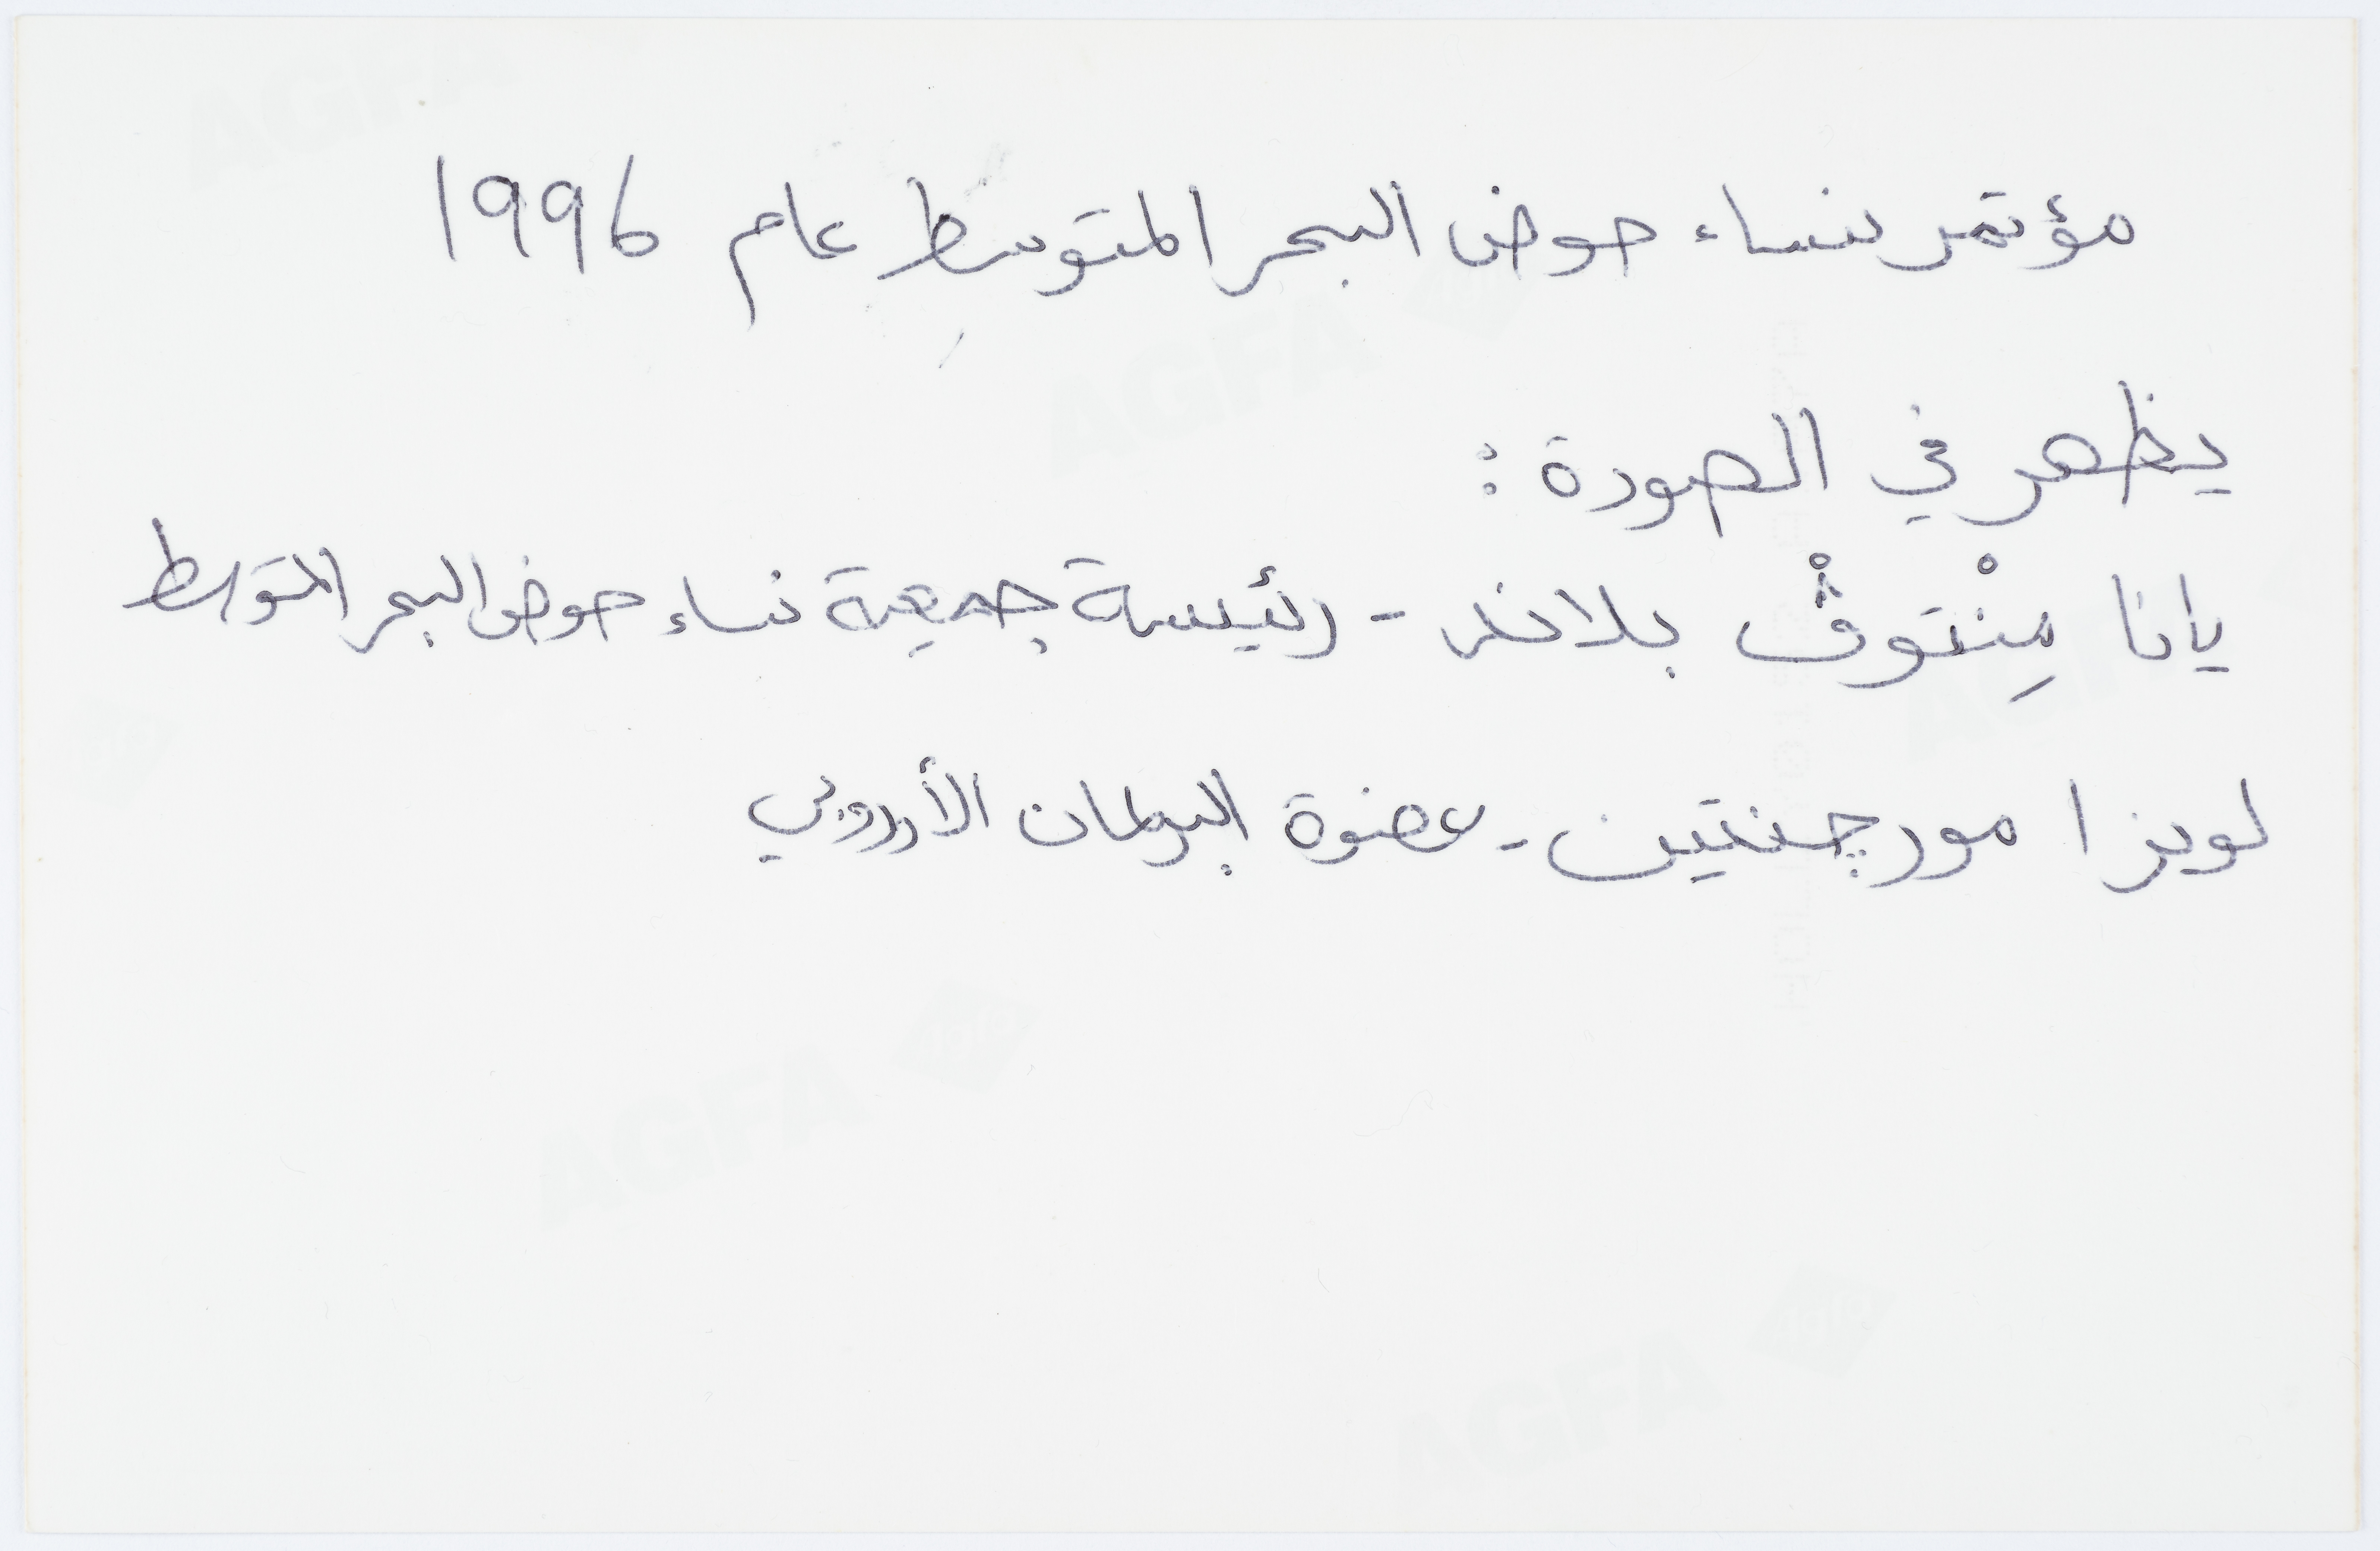 مؤتمر نساء حوض البحر المتوسط عام 1996
يظهر في الصورة :
يانا مِنْتوڤْ بلاند - رئيسة جمعية نساء حوض البحر المتوسط
لويزا مورچنتين - عضوة البرلمان الأوروبي
AGFA
AGFA
AGFA
AGFA
AGFA